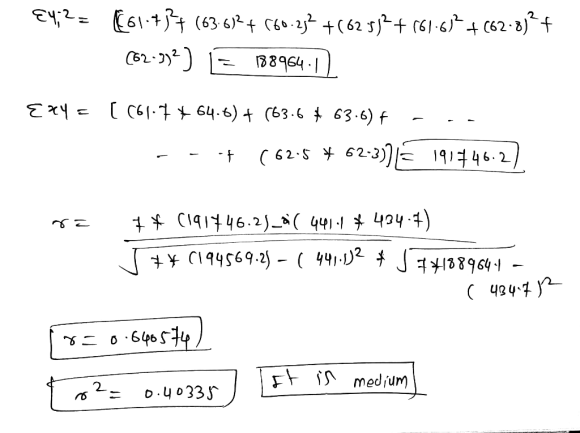 Σyi² = [(61.7)² + (63.6)² + (60.2)² + (62.5)² + (61.6)² + (62.8)² +
(62.3)²] = 188964.1
Σxy = [(61.7 * 64.6) + (63.6 * 63.6) + - - -
- - - + (62.5 * 62.3)] = 191746.2
r = 7 * (191746.2) - (441.1 * 434.7)
√7 * (194569.2) - (441.1)² * √7*188964.1 -
(434.7)²
r = 0.640574
r² = 0.40335
It is medium